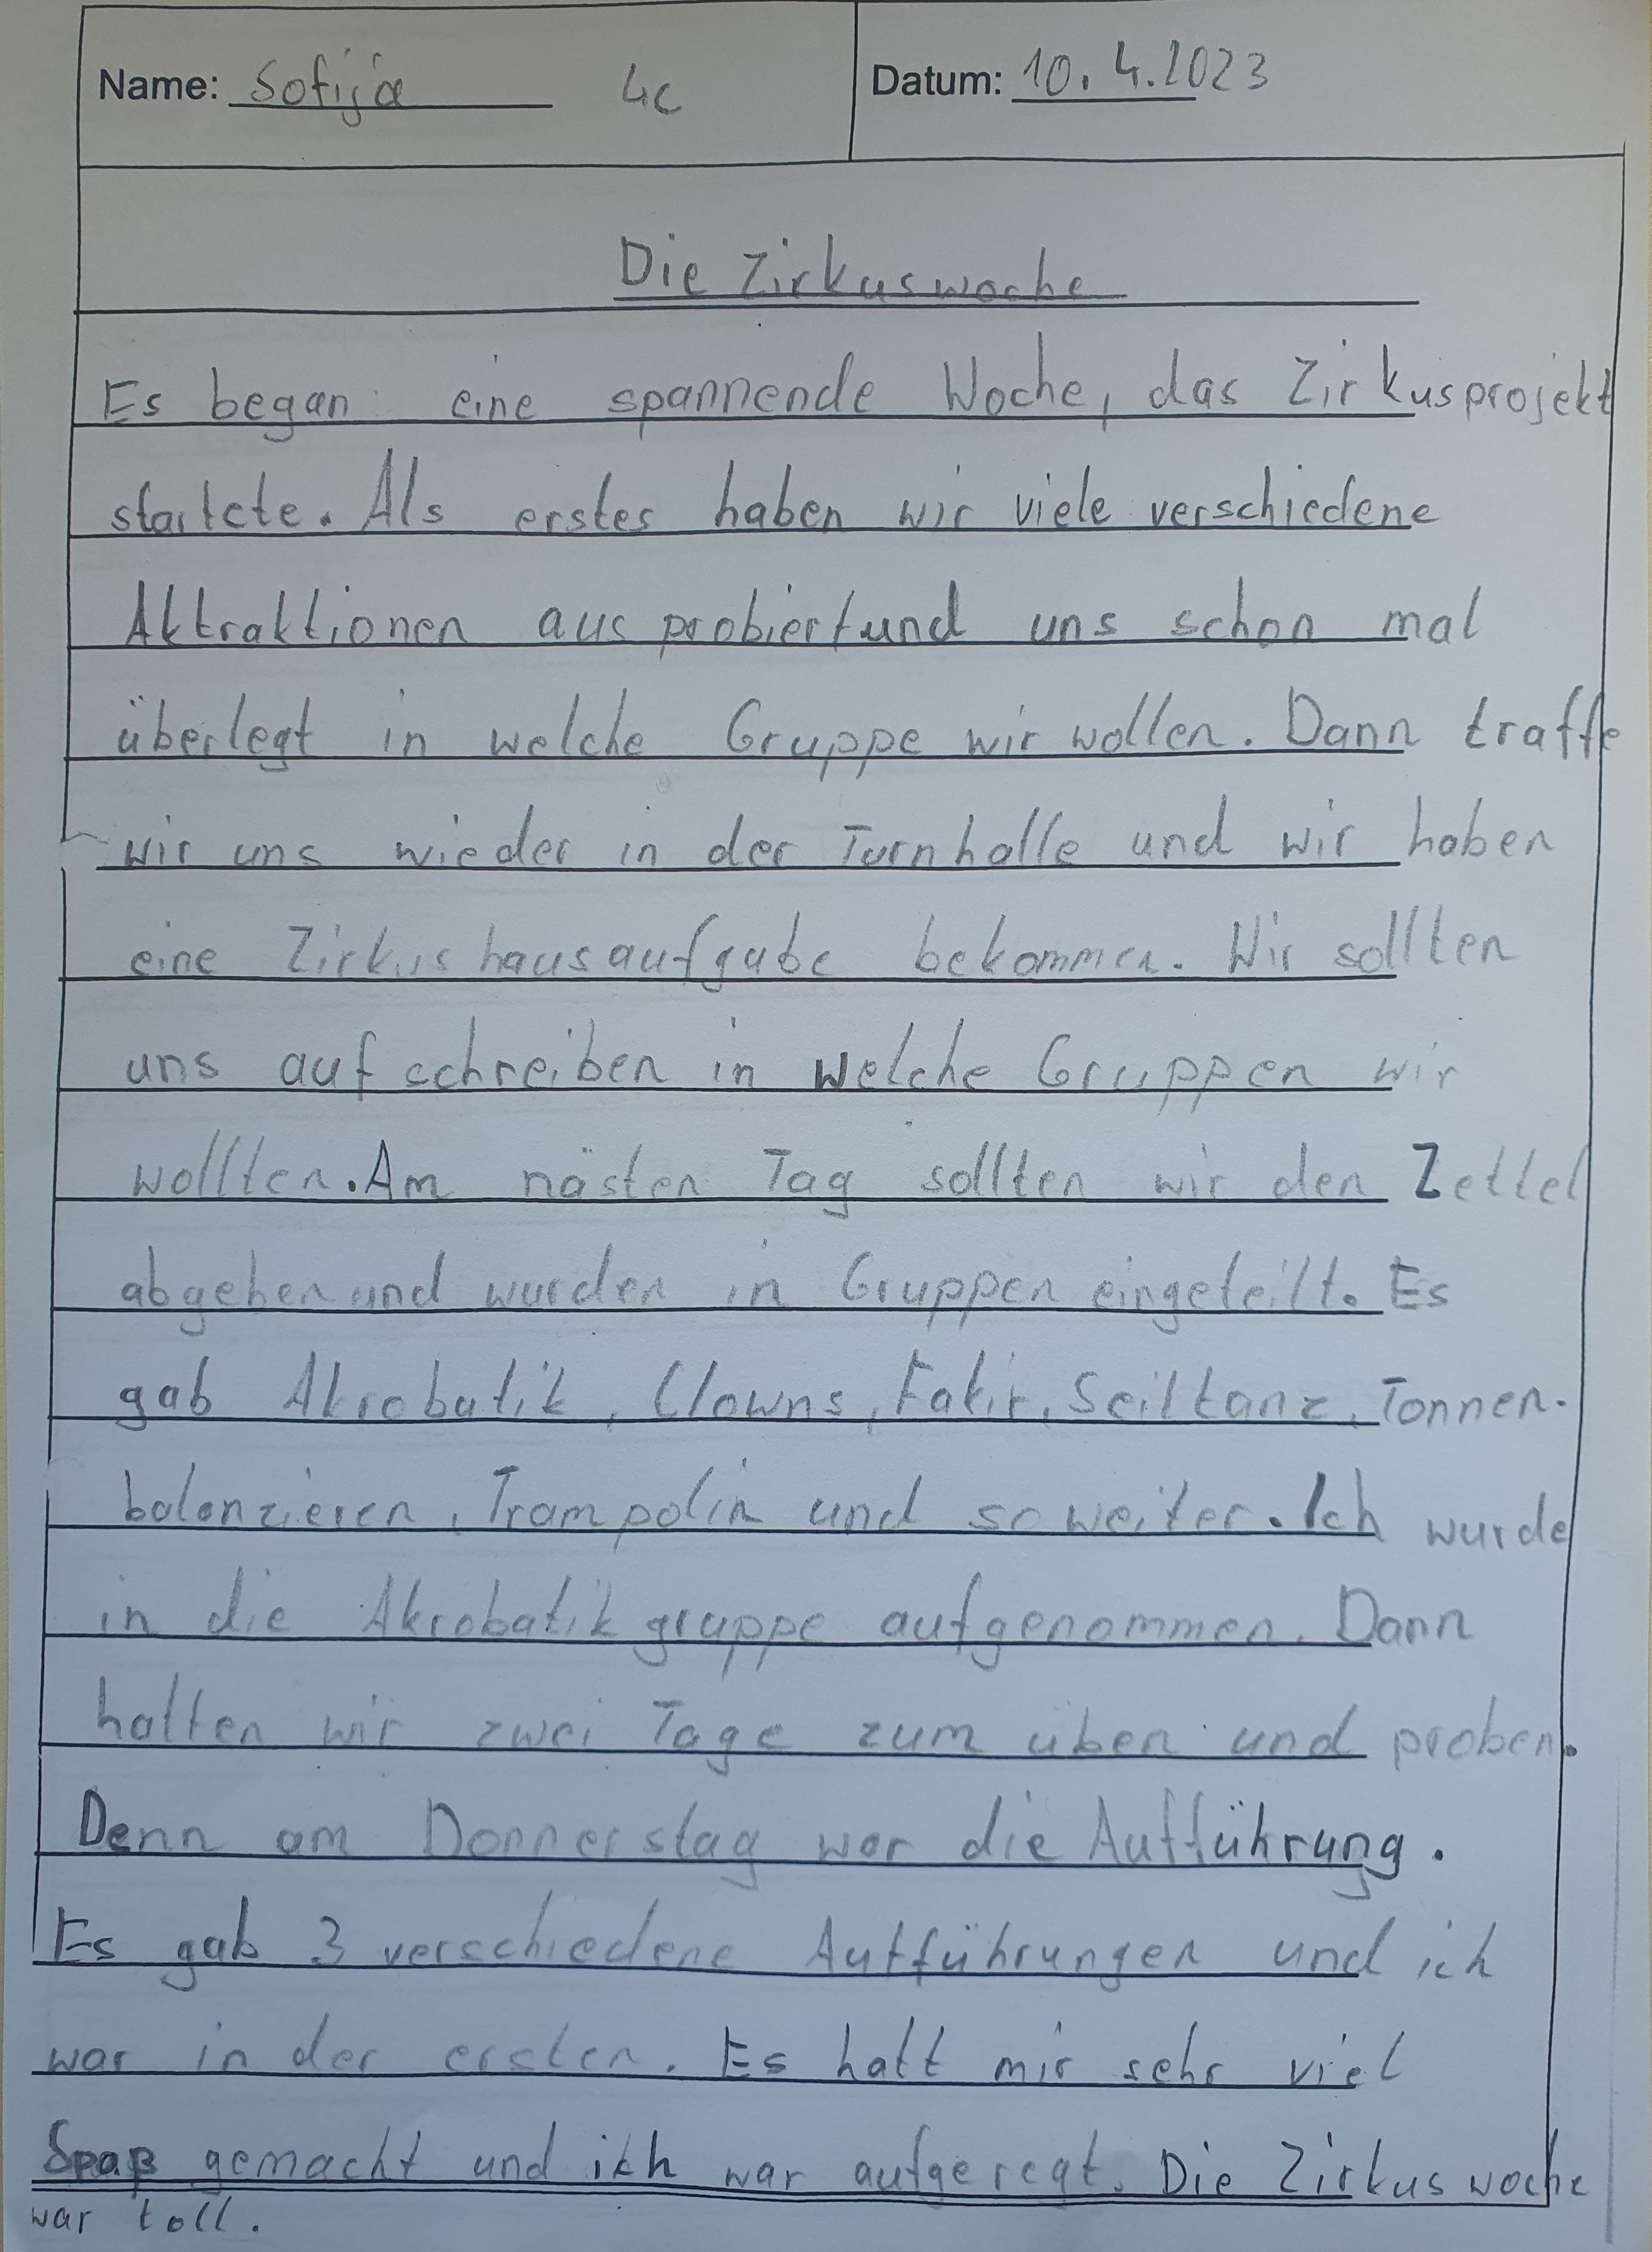 Name: Sofija 4c Datum: 10.4.2023
Die Zirkuswoche
Es began eine spannende Woche, das Zirkusprojekt
startete. Als erstes haben wir viele verschiedene
Aktraktionen ausprobiert und uns schon mal
überlegt in welche Gruppe wir wollen. Dann traffe
wir uns wieder in der Turnhalle und wir haben
eine Zirkushausaufgabe bekommen. Wir sollten
uns aufschreiben in welche Gruppen wir
wollten. Am nästen Tag sollten wir den Zettel
abgeben und wurden in Gruppen eingeteilt. Es
gab Akrobatik, Clowns, Fakir, Seiltanz, Tonnen-
balanzieren, Trampolin und so weiter. Ich wurde
in die Akrobatikgruppe aufgenommen. Dann
hatten wir zwei Tage zum üben und proben.
Denn am Donnerstag war die Aufführung.
Es gab 3 verschiedene Aufführungen und ich
war in der ersten. Es hatt mir sehr viel
Spaß gemacht und ich war aufgeregt. Die Zirkuswoche
war toll.